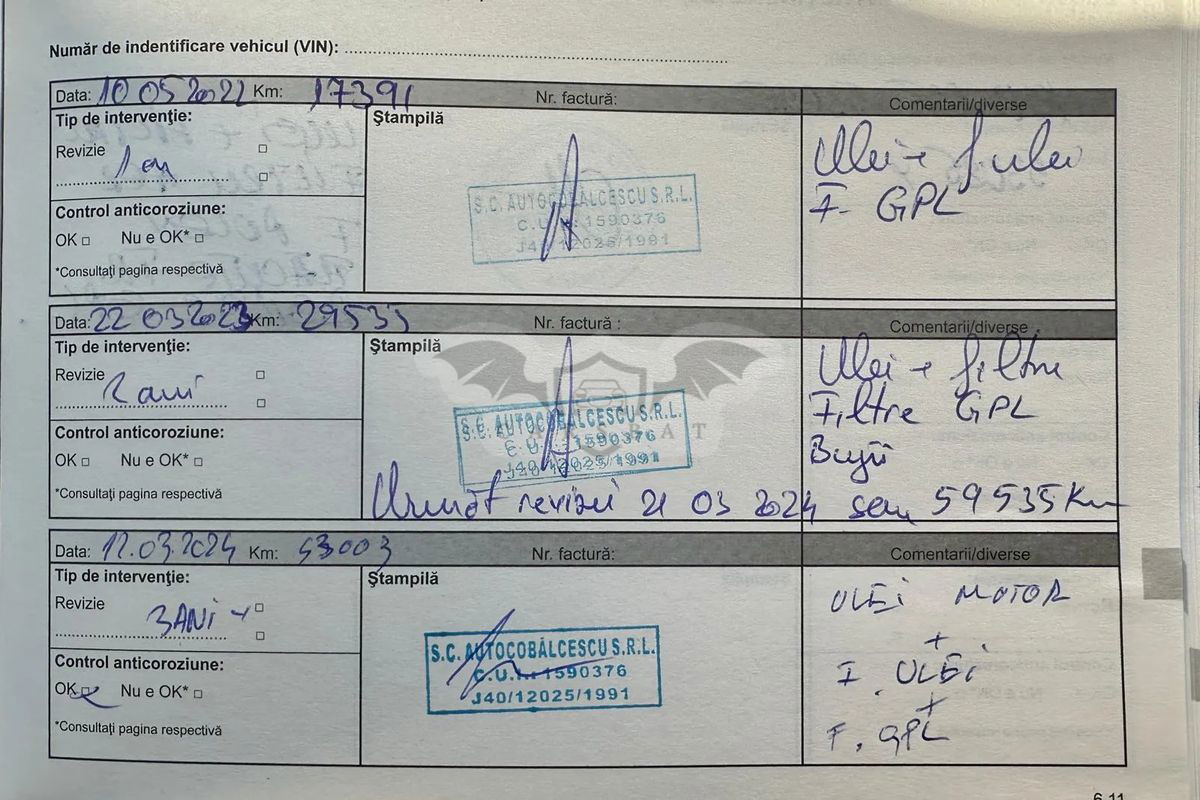 Număr de indentificare vehicul (VIN): ..........
Data: 10 05 2022 Km: 17391 Nr. factură: Comentarii/diverse
Tip de intervenţie:
Ştampilă
Revizie
1 an
Control anticoroziune:
OK □ Nu e OK* □
*Consultaţi pagina respectivă
S.C. AUTOCOBĂLCESCU S.R.L.
1590376
J40/12025/1991
Ulei + f. ulei
F. GPL
Data: 22 03 2023 Km: 29535 Nr. factură : Comentarii/diverse
Tip de intervenţie:
Ştampilă
Revizie
2 ani
Control anticoroziune:
OK □ Nu e OK* □
*Consultaţi pagina respectivă
S.C. AUTOCOBĂLCESCU S.R.L.
1590376
J40/12025/1991
Ulei + filtre
Filtre GPL
Bujii
revizii 21 03 2024 sau 59535 Km
Data: 12.03.2024 Km: 43003 Nr. factură: Comentarii/diverse
Tip de intervenţie:
Ştampilă
Revizie
3 ANI
Control anticoroziune:
OK Nu e OK* □
*Consultaţi pagina respectivă
S.C. AUTOCOBĂLCESCU S.R.L.
C.U.I. 1590376
J40/12025/1991
ULEI MOTOR
+
F. ULEI
+
F. GPL
6.11